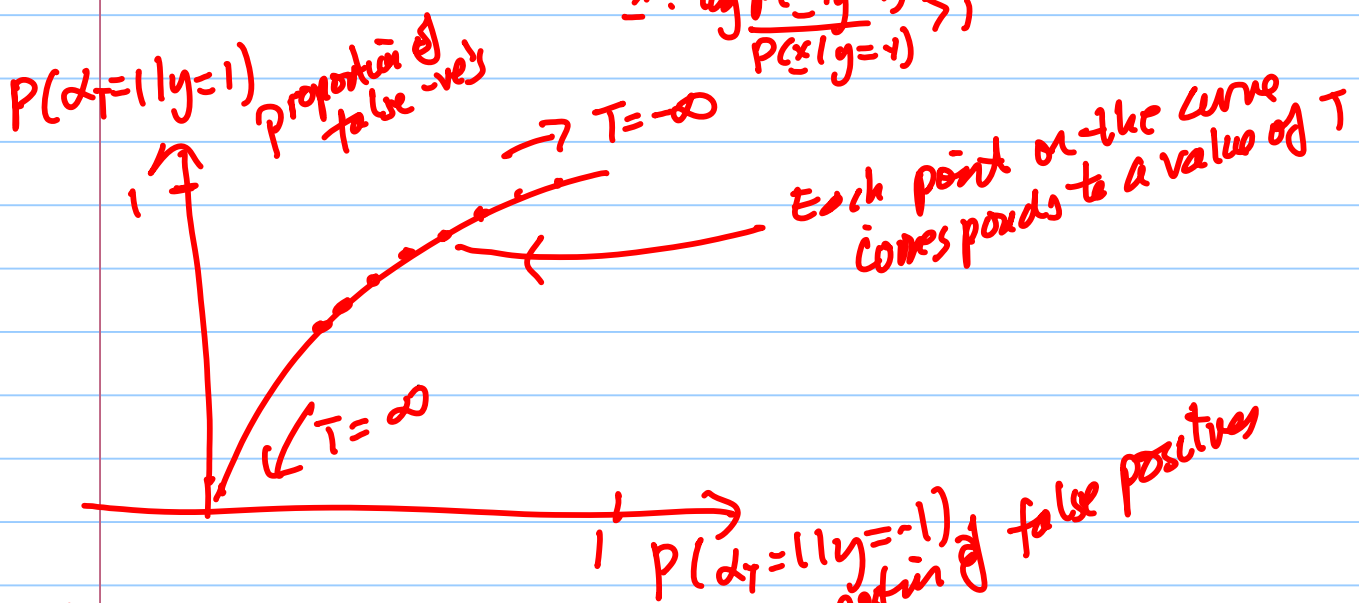 P(x|y=-1)
P(α_T=1|y=1) proportion of
false -ve's
T=-∞
1
Each point on the curve
corresponds to a value of T
T=∞
1
P(α_T=1|y=-1)
of false positives